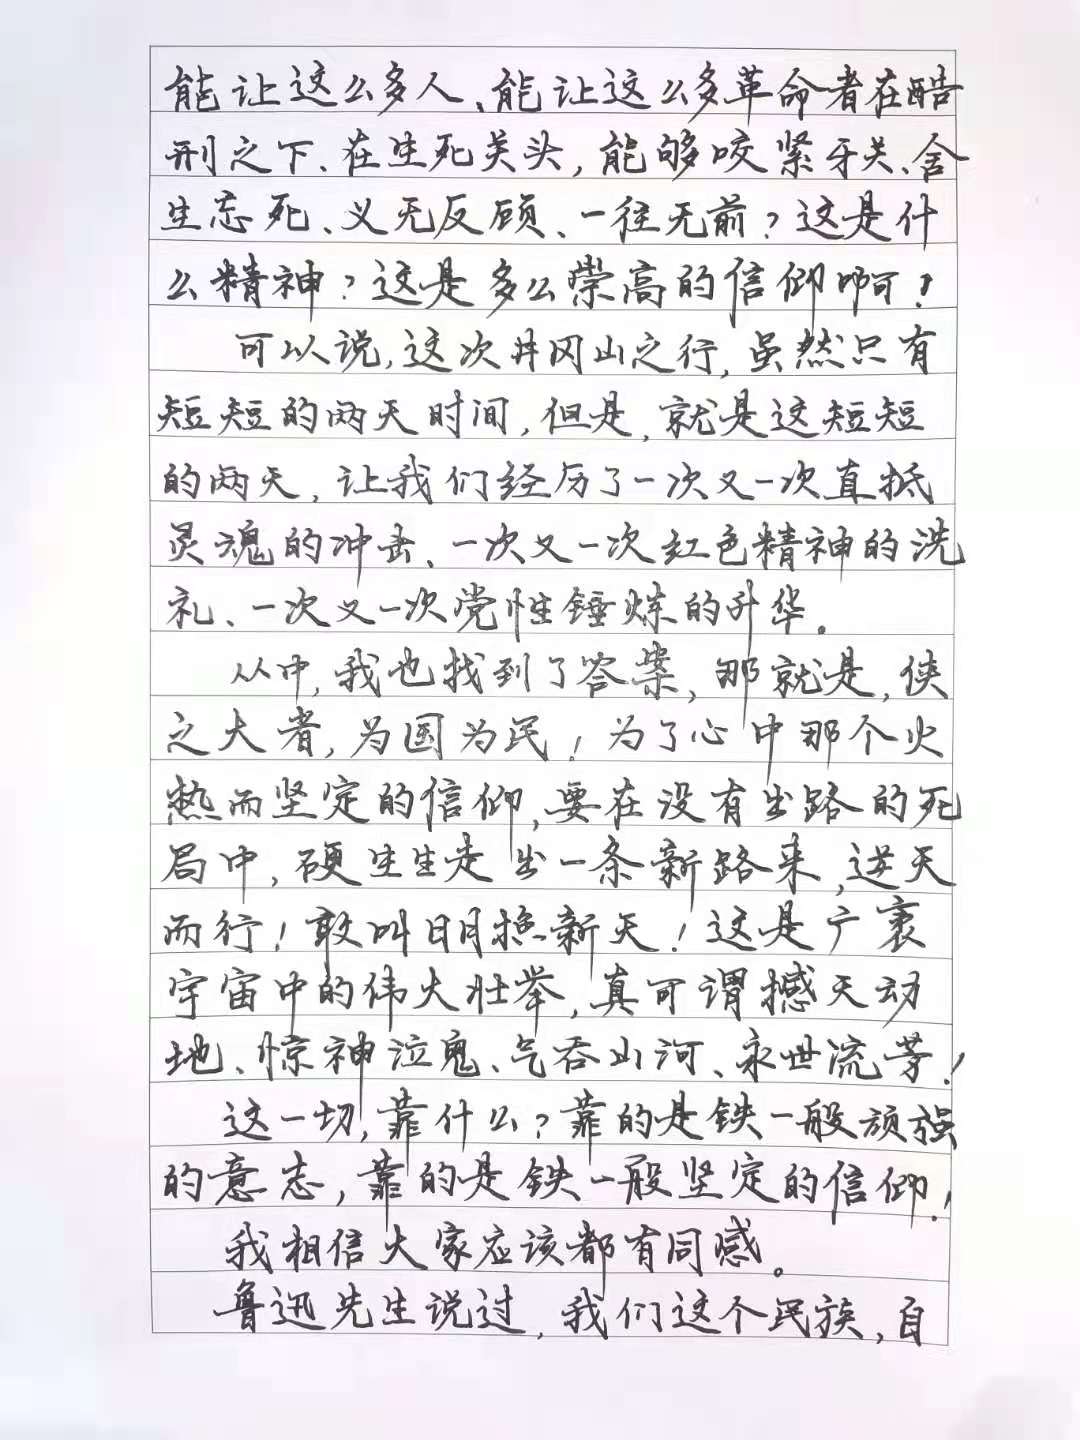 能让这么多人、能让这么多革命者在酷
刑之下、在生死关头，能够咬紧牙关、舍
生忘死、义无反顾、一往无前？这是什
么精神？这是多么崇高的信仰啊！
可以说，这次井冈山之行，虽然只有
短短的两天时间，但是，就是这短短
的两天，让我们经历了一次又一次直抵
灵魂的冲击、一次又一次红色精神的洗
礼、一次又一次党性锤炼的升华。
从中，我也找到了答案，那就是，侠
之大者，为国为民！为了心中那个火
热而坚定的信仰，要在没有出路的死
局中，硬生生走出一条新路来，逆天
而行！敢叫日月换新天！这是广袤
宇宙中的伟大壮举，真可谓撼天动
地、惊神泣鬼、气吞山河、永世流芳！
这一切，靠什么？靠的是铁一般顽强
的意志，靠的是铁一般坚定的信仰！
我相信大家应该都有同感。
鲁迅先生说过，我们这个民族，自